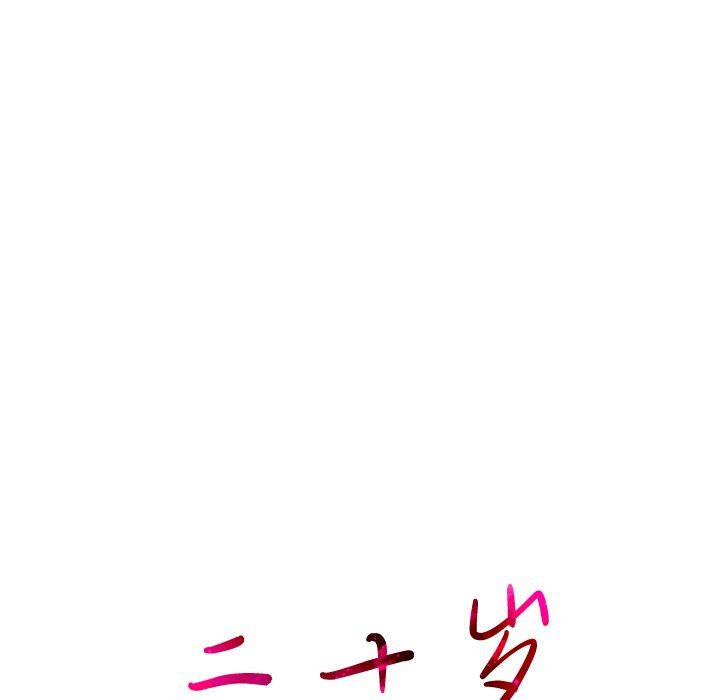 二十岁